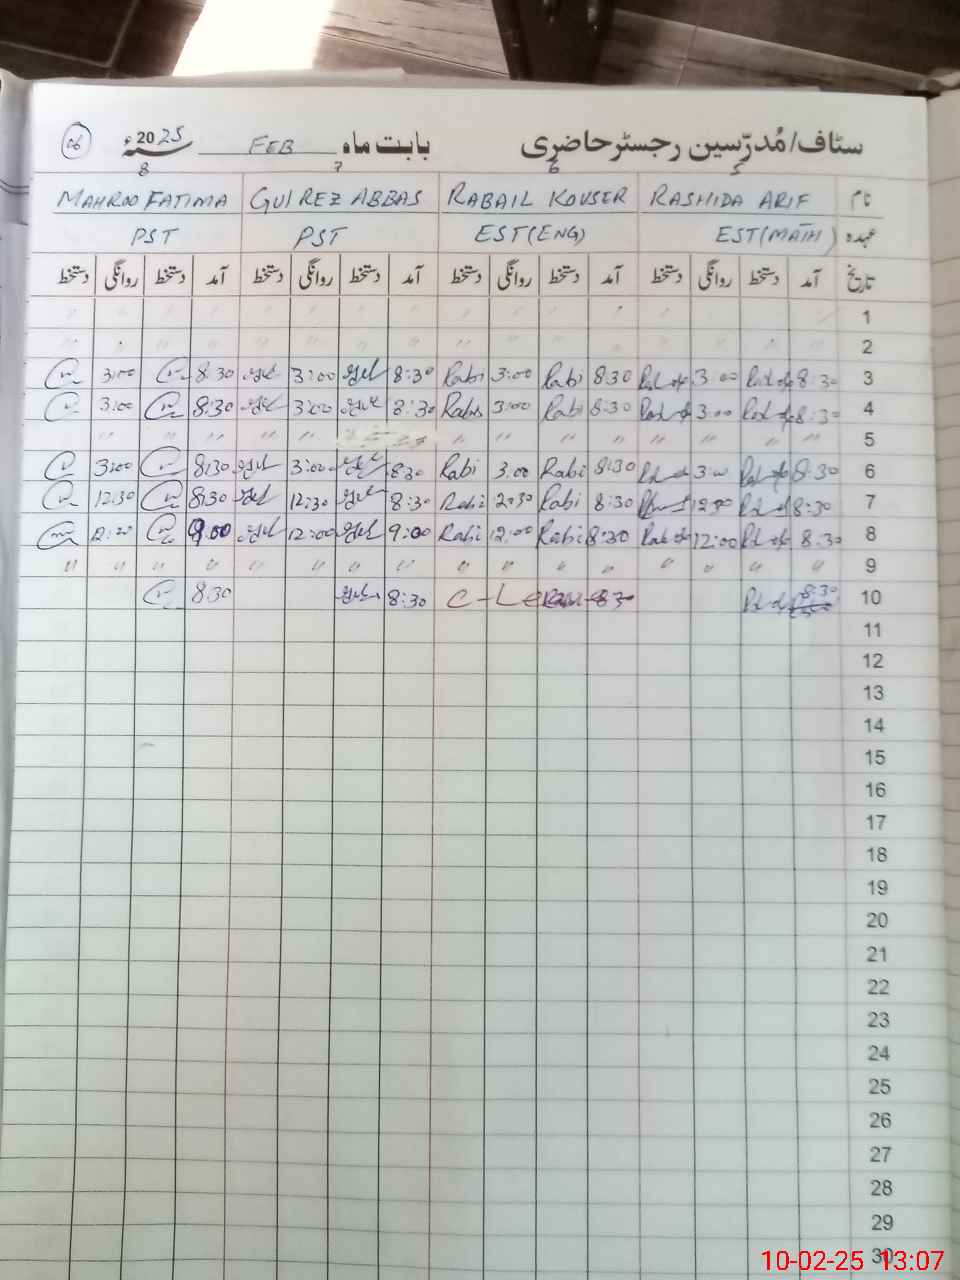 سٹاف/مُدرّسین رجسٹر حاضری بابت ماہ FEB 2025ء سنہ 06
5 6 7 8
نام RASHIDA ARIF RABAIL KOUSER GULREZ ABBAS MAHROO FATIMA
عہدہ EST(MATH) EST(ENG) PST PST
تاریخ آمد دستخط روانگی دستخط آمد دستخط روانگی دستخط آمد دستخط روانگی دستخط آمد دستخط روانگی دستخط
1 " " " " " " " " " " " " " " " "
2 " " " " " " " " " " " " " " " "
3 8:30 3:00 8:30 Rabi 3:00 Rabi 8:30 گل 3:00 گل 8:30 3:00
4 8:30 3:00 8:30 Rabi 3:00 Rabi 8:30 گل 3:00 گل 8:30 3:00
5 " " " " " " " " " " " " " "
6 8:30 3:00 8:30 Rabi 3:00 Rabi 8:30 گل 3:00 گل 8:30 3:00
7 8:30 8:30 Rabi Rabi 8:30 گل 12:30 گل 8:30 12:30
8 8:30 12:00 8:30 Rabi 12:00 Rabi 9:00 گل 12:00 گل 9:00
9 " " " " " " " " " " " " " " " "
10 8:30 8:30 C-Leave 8:30 گل 8:30
11
12
13
14
15
16
17
18
19
20
21
22
23
24
25
26
27
28
29
30
10-02-25 13:07